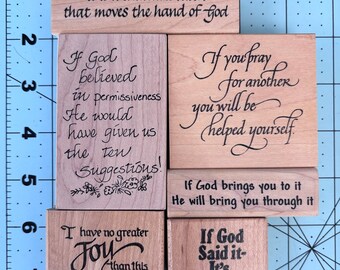 that moves the hand of God
If God
believed
in permissiveness
He would
have given us
the ten
suggestions!
If you pray
for another
you will be
helped yourself.
If God brings you to it
He will bring you through it
I have no greater
Joy
than this
If God
Said it-
It's
2
3
4
5
6